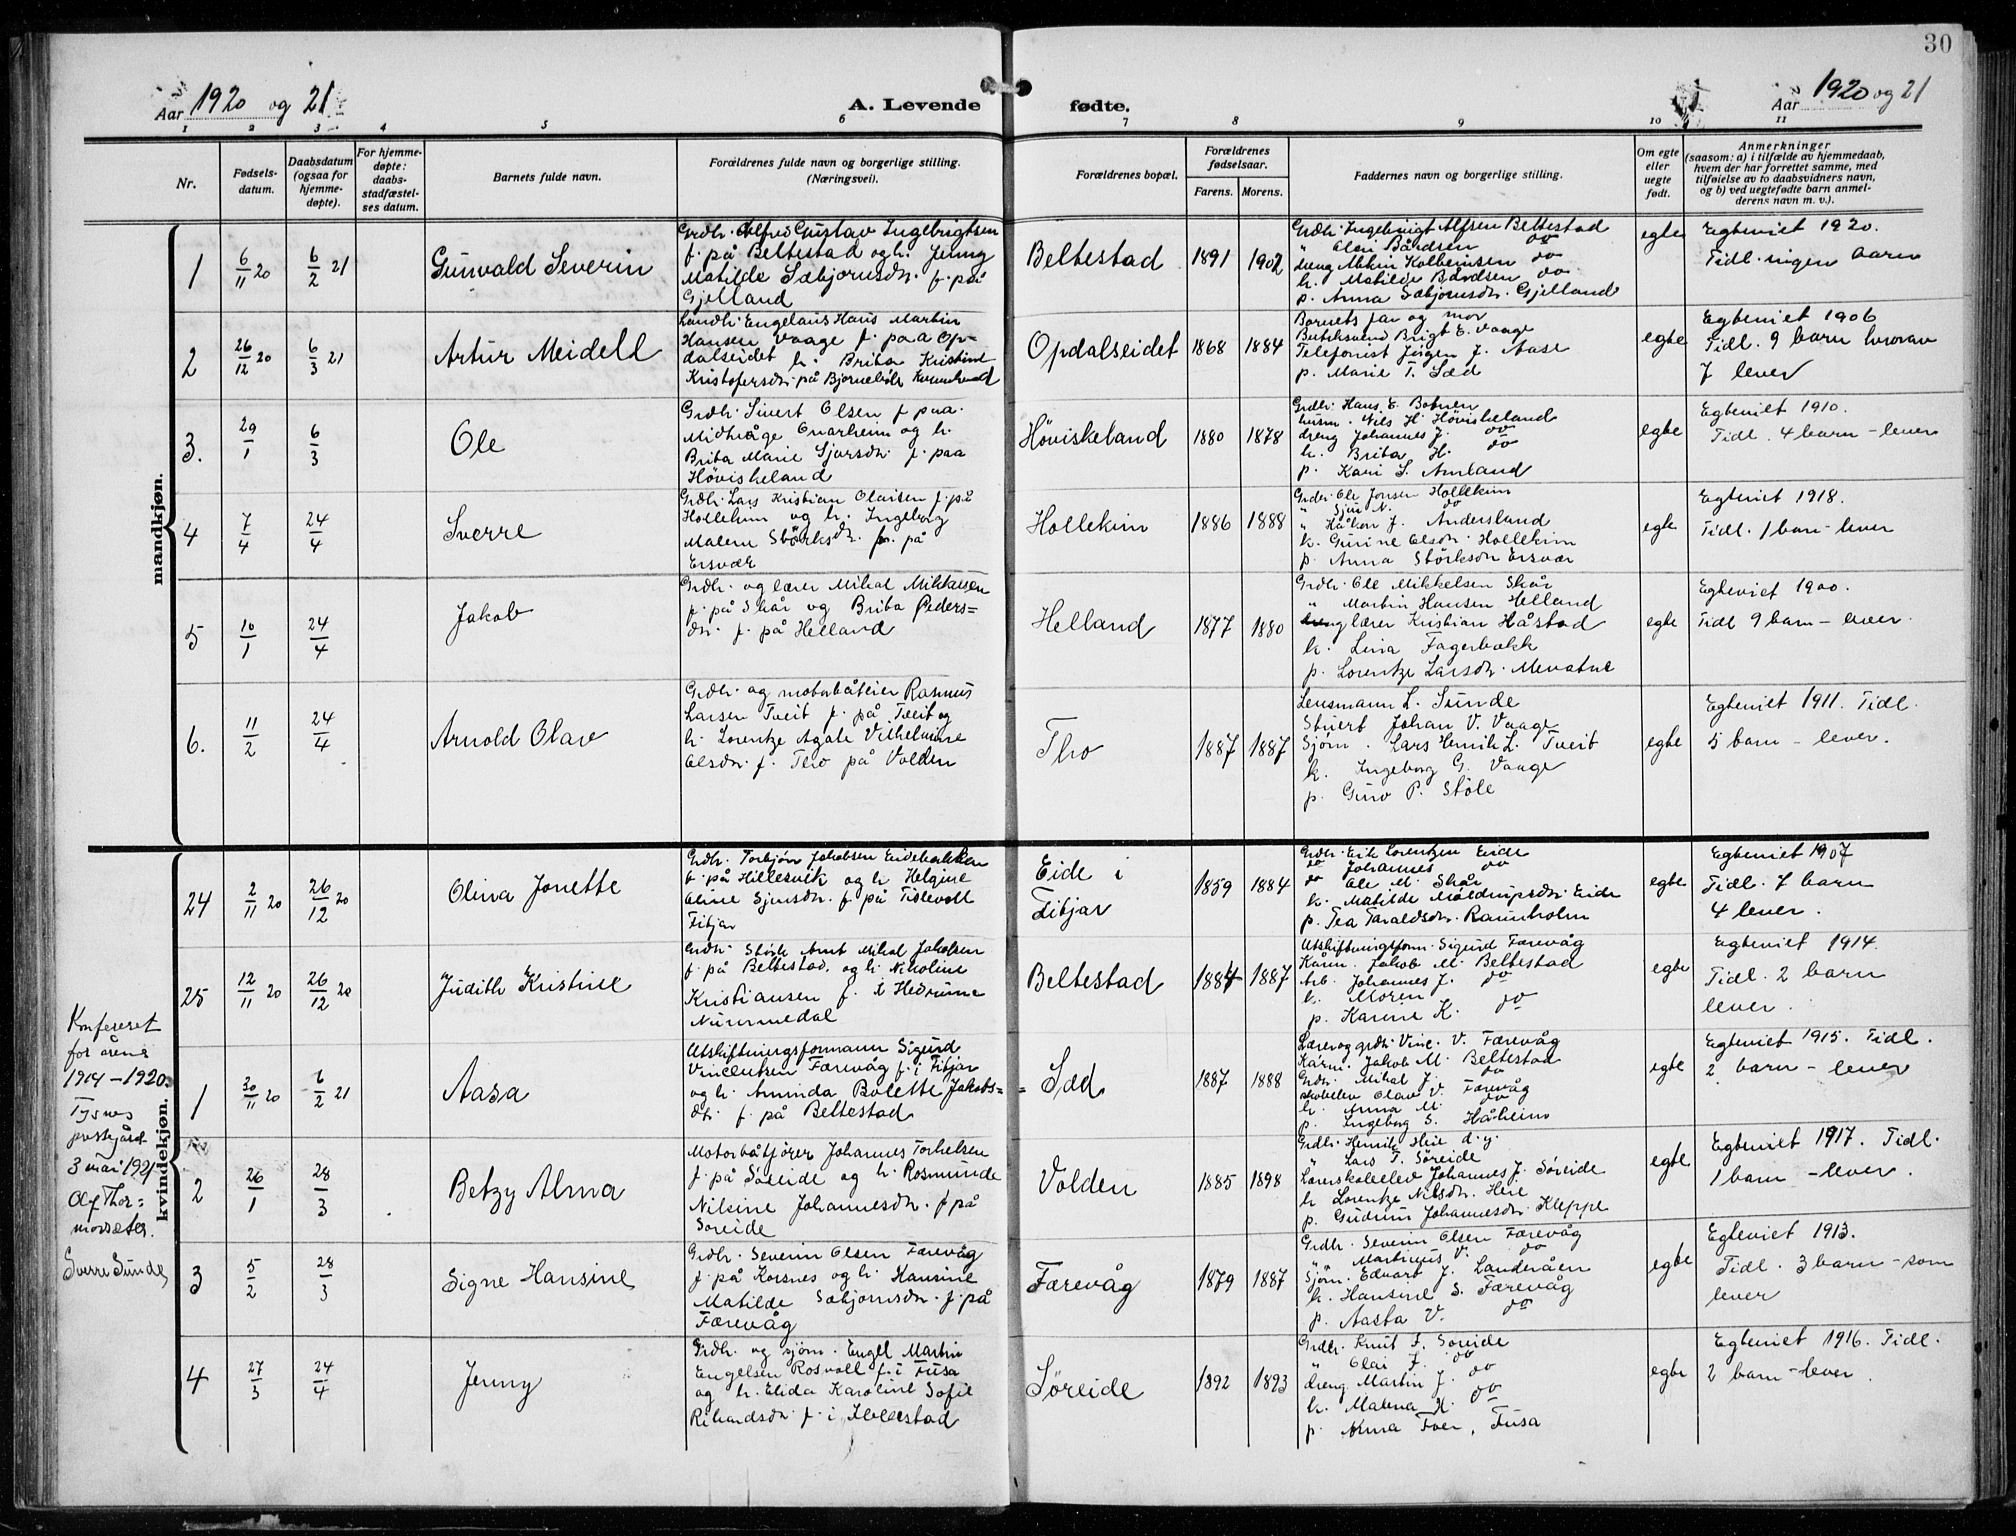 30
Aar 1920 og 21
A. Levende
fødte.
Aar 1920 og 21
1 2 3 4 5 6 7 8 9 10 11
Nr.
Fødsels-
datum.
Daabsdatum
(ogsaa for
hjemme-
døpte).
For hjemme-
døpte:
daabs-
stadfæstel-
ses datum.
Barnets fulde navn.
Forældrenes fulde navn og borgerlige stilling.
(Næringsvei).
Forældrenes bopæl.
Forældrenes
fødselsaar.
Farens. Morens.
Faddernes navn og borgerlige stilling.
Om egte
eller
uegte
født.
Anmerkninger
(saasom: a) i tilfælde av hjemmedaab,
hvem der har forrettet samme, med
tilføielse av to daabsvidners navn,
og b) ved uegtefødte barn anmel-
derens navn m. v.).
mandkjøn.
1
6/11 20
6/2 21
Gunvald Severin
Grdbr. Alfred Gustav Ingebrigtsen
f. på Beltestad og h. Jenny
Matilde Sæbjørnsdr. f. på
Gjelland
Beltestad
1891
1902
Grdbr. Ingebrigt Alfsen Beltestad
" Olai Bårdsen do
dreng Mikin Kolbeinsen do
k. Matilde Bårdsen do
p. Anna Sæbjørnsdr. Gjelland
egte
Egteviet 1920.
Tidl. ingen barn
2
26/12 20
6/3 21
Artur Meidell
Landh. Engelaus Hans Martin
Hansen Vaage f. paa Op-
dalseidet h. Brita Kristine
Kristofersdr. på Bjørnebøle
Opdalseidet
1868
1884
Barnets far og mor
Butiksvend Brigt E. Vaage
Telefonist Jørgen J. Aase
p. Marie T. Sæd
egte
Egteviet 1906
Tidl. 9 barn hvorav
7 lever
3.
29/1
6/3
Ole
Grdbr. Sivert Olsen f. paa
Midhvåge Onarheim og h.
Brita Marie Sjursdr. f. paa
Høviskeland
Høviskeland
1880
1878
Grdbr. Hans E. Botnen
husm. Nils H. Høviskeland
dreng Johannes J. do
k. Brita H. do
p. Kari S. Amland
egte
Egteviet 1910.
Tidl. 4 barn - lever
4
7/4
24/4
Sverre
Grdbr. Lars Kristian Olaisen f. på
Hollekim og h. Ingeborg
Malene Størksdr. f. på
Ersvær
Hollekim
1886
1888
Grdbr. Ole Jonsen Hollekim
" Sjur N. do
" Håkon J. Andersland
k. Gurine Olsdr. Hollekim
p. Anna Størksdr Ersvær
egte
Egteviet 1918.
Tidl. 1 barn - lever
5
10/1
24/4
Jakob
Grdbr. og lærer Mikal Mikkelsen
f. på Skår og Brita Peders=
dr. f. på Helland
Helland
1877
1880
Grdbr. Ole Mikkelsen Skår
" Martin Hansen Helland
lærer Kristian Håstad
k. Lina Fagerbakk
p. Lorentze Larsdr. Mevatne
egte
Egteviet 1900.
Tidl 9 barn - lever.
6.
11/2
24/4
Arnold Olav
Grdbr. og motorbåteier Rasmus
Larsen Tveit f. på Tveit og
h. Lorentze Agate Vilhelmine
Olsdr. f. Tho på Volden
Tho
1887
1887
Lensmann L. Sunde
Stuert Johan V. Vaage
Sjøm. Lars Henrik L. Tveit
k. Ingeborg G. Vaage
p. Guro P. Støle
egte
Egteviet 1911. Tidl.
5 barn - lever.
kvindekjøn.
24
2/11 20
26/12 20
Olina Jonette
Grdbr. Torbjørn Jakobsen Eidebakken
f. på Hillesvik og h. Helgine
Oline Sjursdr. f. på Tislevoll
Fitjar
Eide i
Fitjar
1859
1884
Grdbr. Erik Lorentzen Eide
do Johannes do
do Ole M. Skår
k. Matilde Møldrupsdr. Eide
p. Tea Taraldsdr. Raunholm
egte
Egteviet 1907
Tidl. 7 barn
4 lever.
25
12/11 20
26/12 20
Judith Kristine
Grdbr. Størk Arnt Mikal Jakobsen
f. på Beltestad. og h. Nikoline
Kristiansen f. i Hedrum
Nummedal
Beltestad
1884
1887
Utskiftningsform. Sigurd Færevåg
Kårm. Jakob M. Beltestad
Arb. Johannes J. do
k. Moren
p. Karine K. do
egte
Egteviet 1914.
Tidl. 2 barn
lever.
Konfereret
for årene
1914-1920
Tysnes
prestegård
3 mai 1921
Olf Thor=
morsæter.
Sverre Sunde
1
30/11 20
6/2 21
Aasa
Utskiftningsformann Sigurd
Vincentsen Færevåg f. i Fitjar
og h. Aminda Bolette Jakobs=
dr. f. på Beltestad
Sæd
1887
1888
Lærer og grdbr. Vinc. V. Færevåg
Kårm. Jakob M. Beltestad
Grdbr. Mikal J. do
skoleelev Olav V. Færevåg
k. Anna M. do
p. Ingeborg S. Håheim
egte
Egteviet 1915. Tidl.
2 barn - lever
2
26/1
28/3
Betzy Alma
Motorbåtfører Johannes Torkelsen
f. på Søreide og h. Rosmunde
Nilsine Johannesdr. f. på
Søreide
Volden
1885
1898
Grdbr. Henrik Heie d. y.
" Lars T. Søreide
Lærerskoleelev Johannes J. Søreide
k. Lorentze Nilsdr. Heie
p. Gudrun Johannesdr. Kleppe
egte
Egteviet 1917. Tidl.
1 barn - lever.
3
5/2
28/3
Signe Hansine
Grdbr. Severin Olsen Færevåg
f. på Korsnes og h. Hansine
Matilde Sæbjørnsdr. f. på
Færevåg
Færevåg
1879
1887
Grdbr. Severin Olsen Færevåg
" Martinus V. do
Sjøm. Edvart J. Landeråen
k. Hansine S. Færevåg
p. Aasta V. do
egte
Egteviet 1913.
Tidl. 3 barn - som
lever
4
27/3
24/4
Jenny
Grdbr. og sjøm. Engel Martin
Engelsen Rosvoll f. i Fusa
og h. Elida Karoline Sofie
Rikardsdr. f. i
Søreide
1892
1893
Grdbr. Knut F. Søreide
" Olai J. do
dreng Martin J. do
k. Malena K. do
p. Anna Tver, Fusa
egte
Egteviet 1916. Tidl.
2 barn - lever.